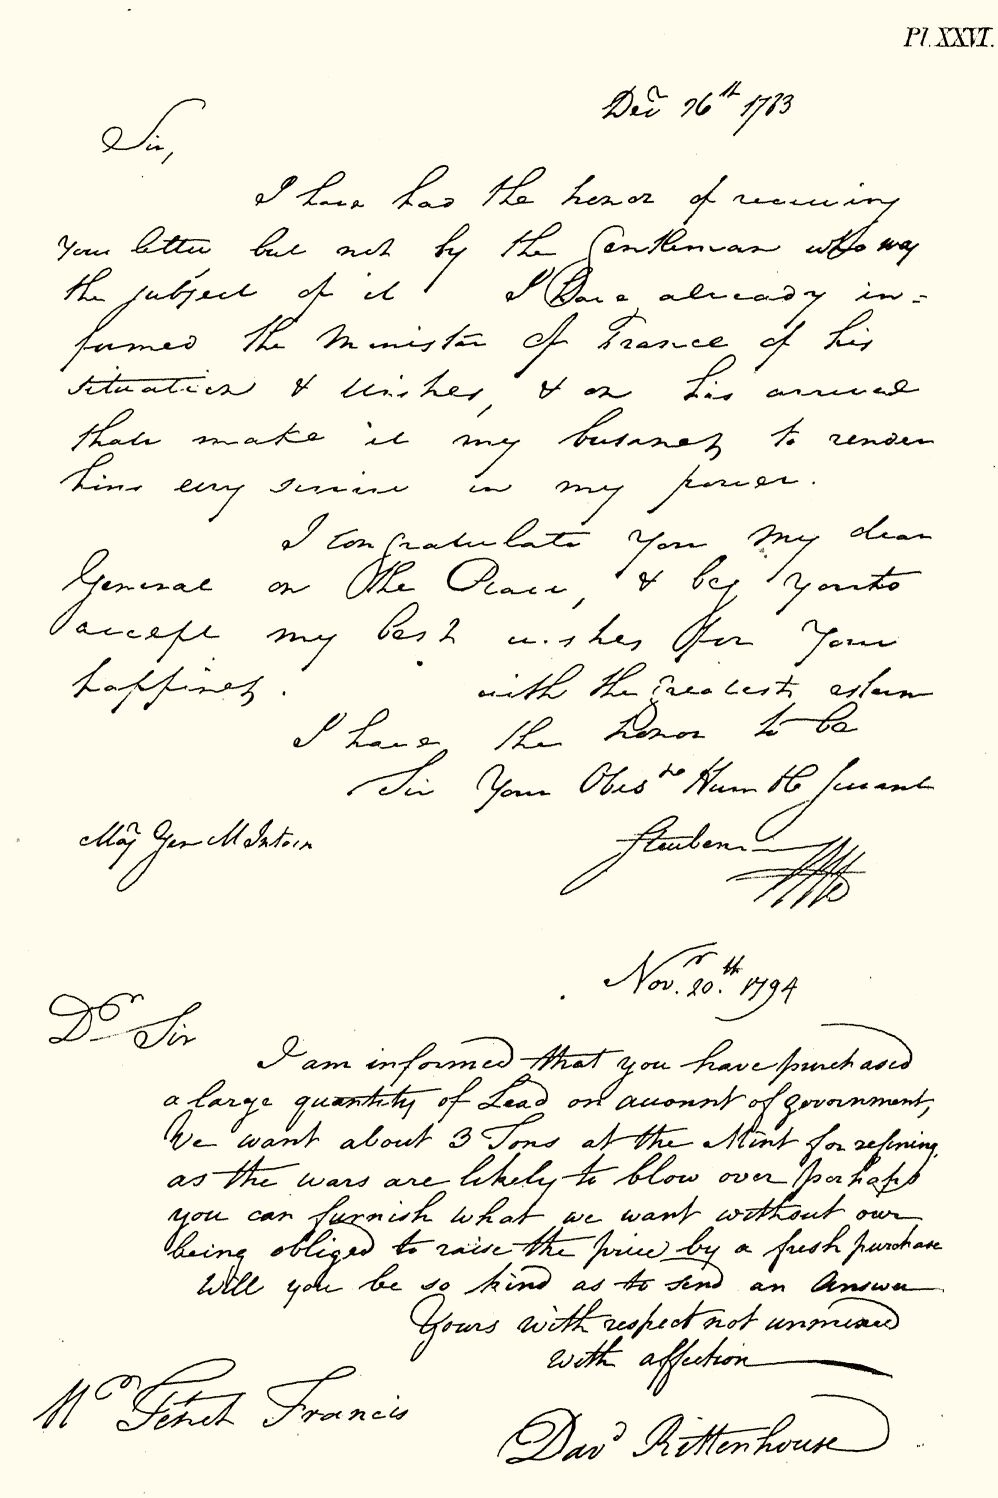 Pl. XXVI.
Decr 26th 1783
Sir,
I have had the honor of receiving
your letter but not by the Gentleman who was
the subject of it I Have already in=
formed the Minister of France of his
situation & wishes, & on his arrival
shall make it my business to render
him evry service in my power.
I congratulate you my dear
General on the Peace, & beg you to
accept my best wishes for Your
happiness. with the Greatest esteem
I have the honor to be
Sir Your Obedt Humble Servant
Majr Gen McIntosh Steuben
Novr. 20.th 1794
Dr Sir
I am informed that you have purchased
a large quantity of Lead on account of government,
We want about 3 Tons at the Mint for refining,
as the wars are likely to blow over perhaps
you can furnish what we want without our
being obliged to raise the price by a fresh purchase
Will you be so kind as to send an Answer
Yours with respect not unmixed
with affection
Mr Tench Francis
Davd Rittenhouse